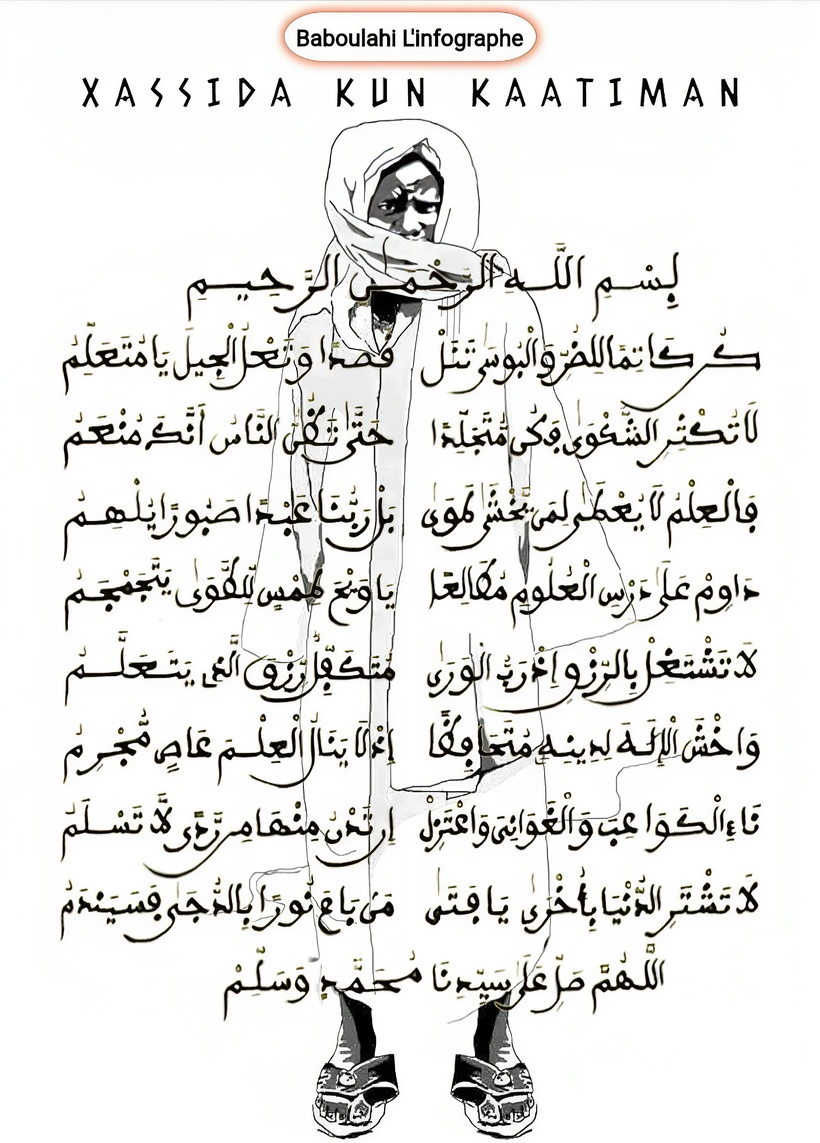 Baboulahi L'infographe
XASSIDA KUN KAATIMAN
بِسْمِ اللَّهِ الرَّحْمَنِ الرَّحِيمِ
كن كاتمًا للضر والبوسى تنل قصدًا وتعل الجيل يا متعلم
لَا تُكْثِرِ الشَّكْوَى وَكُنْ مُتَجَلِّدًا حَتَّى تَظُنَّ النَّاسُ أَنَّكَ مُنْعَمُ
فَالْعِلْمُ لَا يُعْطَى لِمَن يَخْشَى طَوًى بَلْ رَبُّنَا عَبْدًا صَبُورًا يُلْهِمُ
دَاوِمْ عَلَى دَرْسِ الْعُلُومِ مُطَالِعًا يَا وَيْحَ لِلطَّوَى يَتَجَمْجَمُ
لَا تَشْتَغِلْ بِالرِّزْقِ إِذْ رَبُّ الْوَرَى مُتَكَفِّلٌ رِزْقَ الَّذِي يَتَعَلَّمُ
وَاخْشَ الْإِلَهَ لِدِينِهِ مُتَحَافِظًا إِذْ لَا يَنَالُ الْعِلْمَ عَاصٍ مُجْرِمُ
نَاءِ الْكَوَاعِبَ وَالْغَوَانِي وَاعْتَزِلْ إِن تَدْنُ مِنْهَا مِن رَّدًى لَّا تَسْلَمُ
لَا تَشْتَرِ الدُّنْيَا بِأُخْرَى يَا فَتَى مَن بَاعَ نُورًا بِالدُّجَى فَسَيَنْدَمُ
اللَّهُمَّ صَلِّ عَلَى سَيِّدِنَا مُحَمَّدٍ وَسَلِّمْ